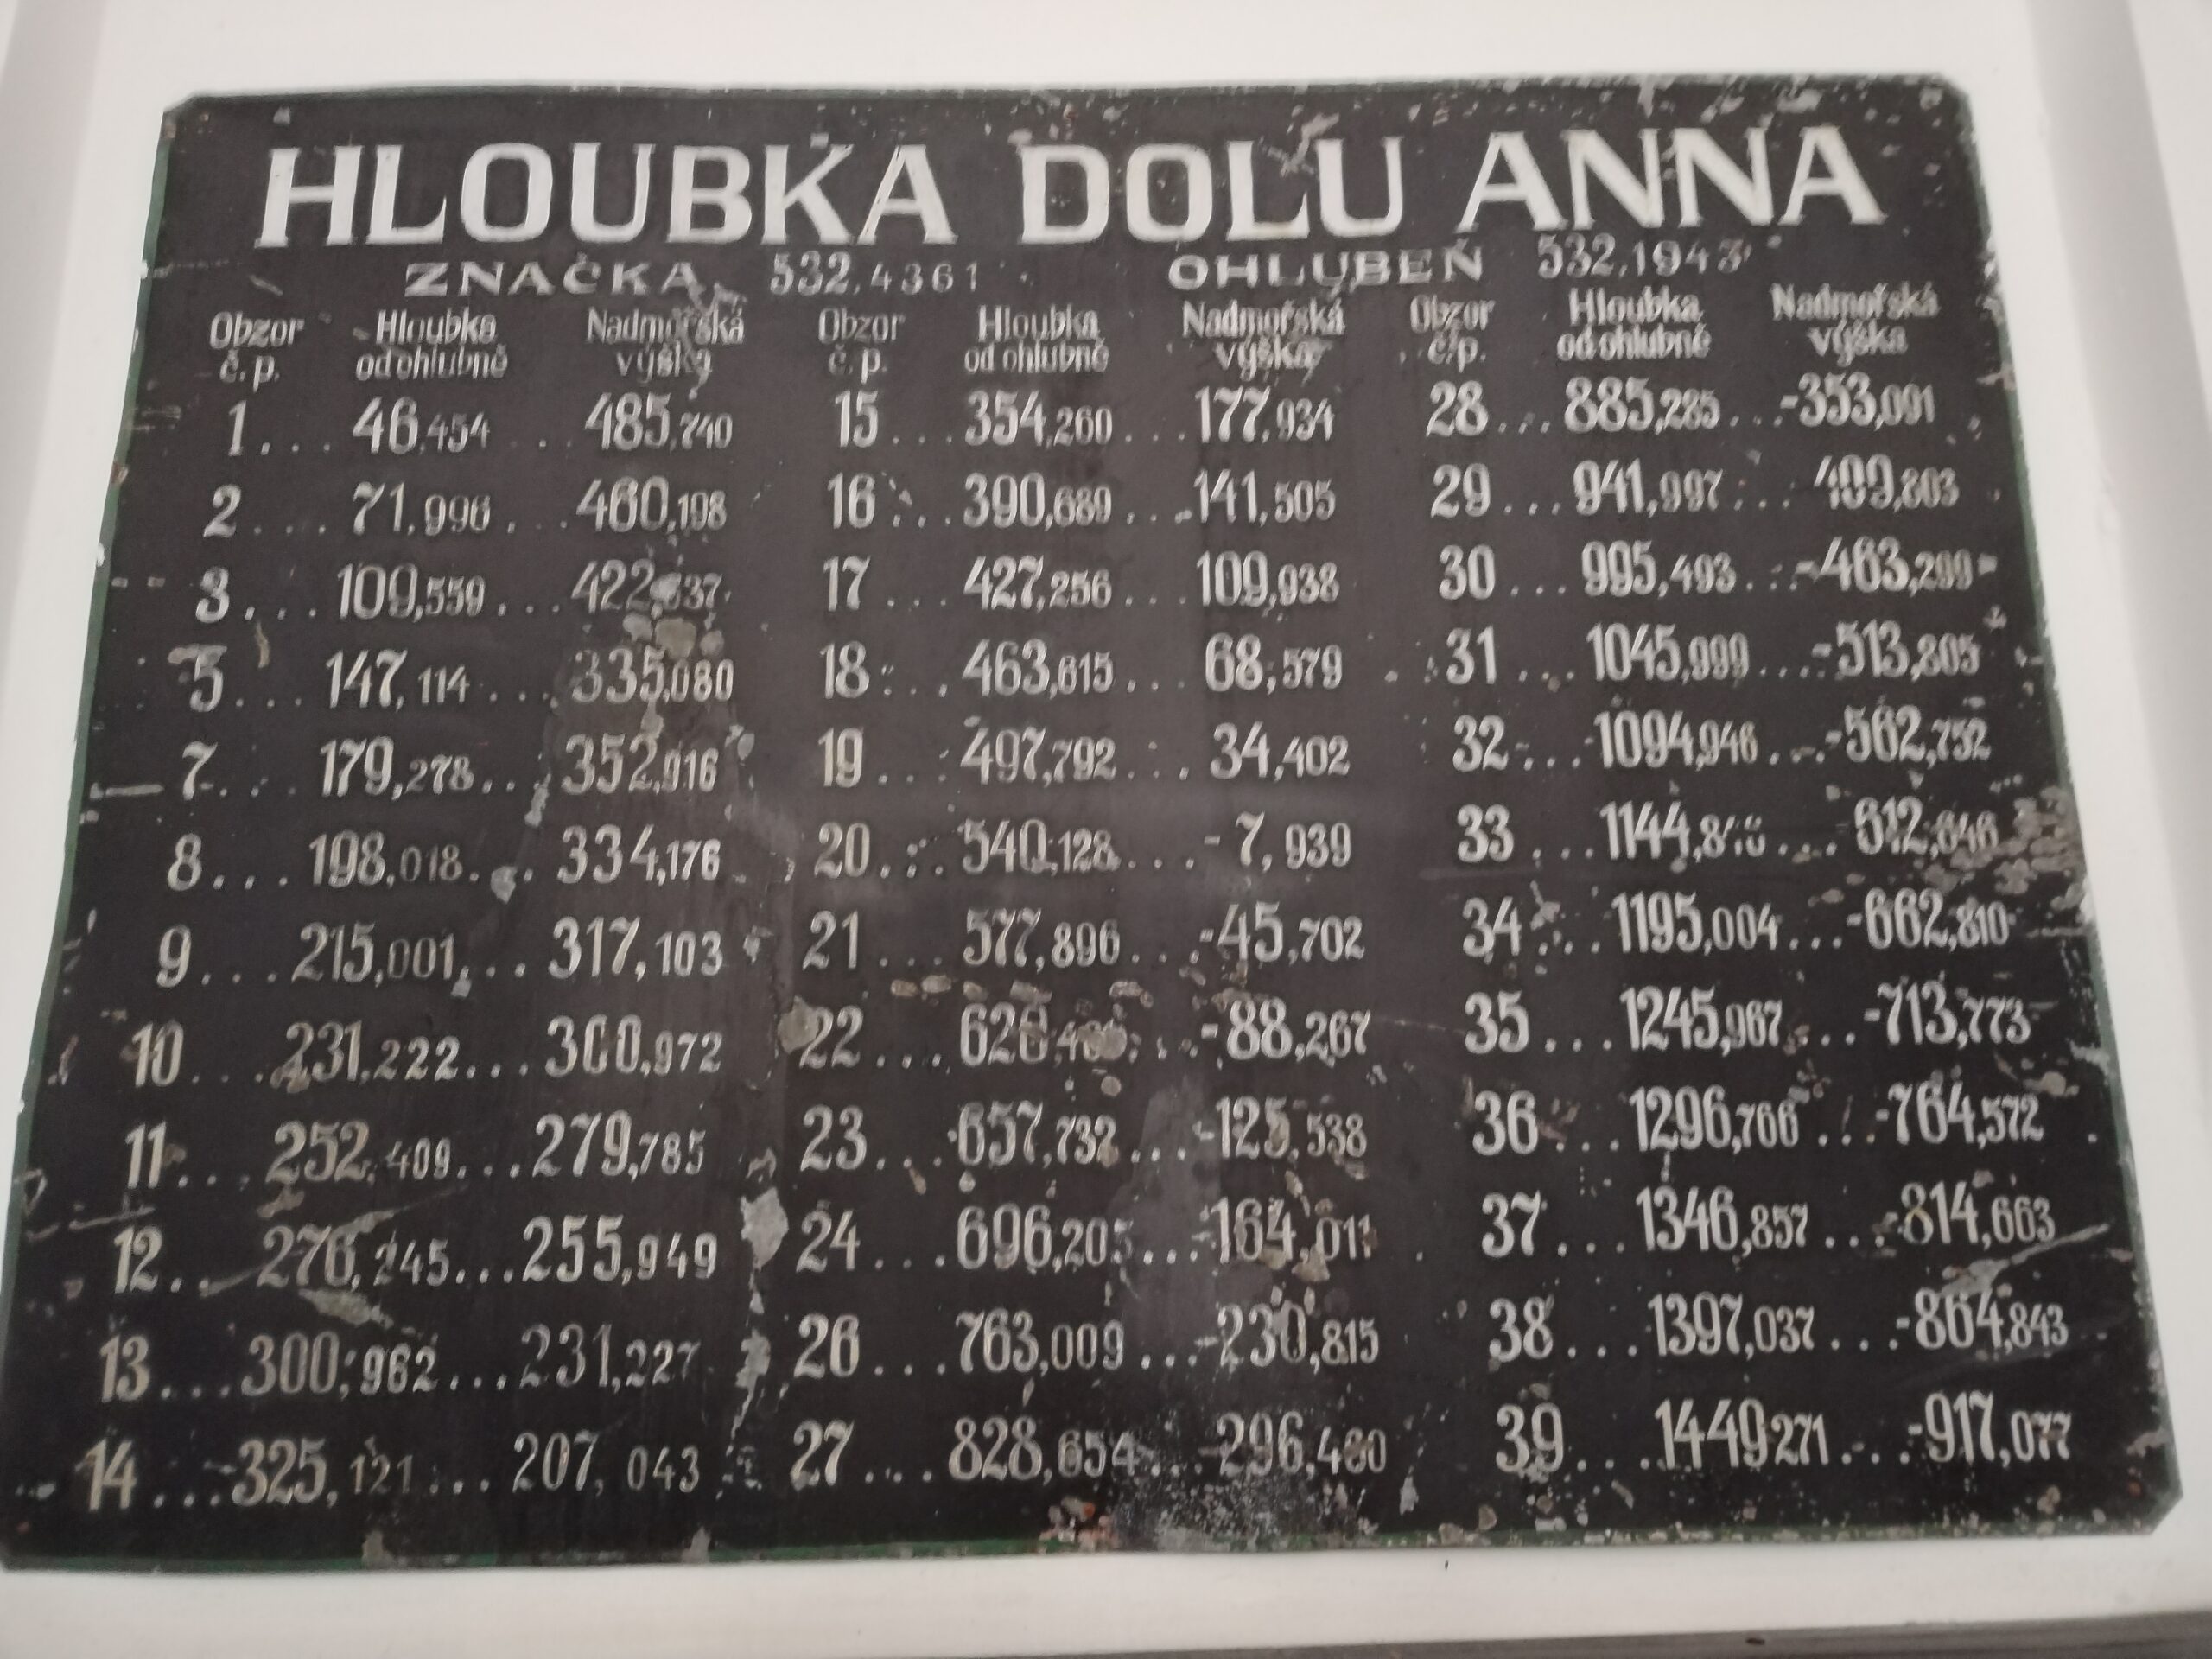 HLOUBKA DOLU ANNA
ZNAČKA 532,4361 OHLUBEŇ 532,1943
Obzor č. p. Hloubka od ohlubně Nadmořská výška Obzor č. p. Hloubka od ohlubně Nadmořská výška Obzor č. p. Hloubka od ohlubně Nadmořská výška
1... 46,454 .. 485,740 15... 354,260... 177,934 28... 885,285... -353,091
2.... 71,996... 460,198 16... 390,689... 141,505 29... 941,997... 409,803
3... 109,559... 422,637 17... 427,256... 109,938 30... 995,493... -463,299
5... 147,114... 335,080 18... 463,615... 68,579 31... 1045,999... -513,805
7... 179,278... 352,916 19... 497,792... 34,402 32... 1094,946... -562,752
8... 198,018... 334,176 20... 540,128... -7,939 33... 1144, 612,646
9... 215,001... 317,103 21... 577,896... -45,702 34... 1195,004... -662,810
10... 231,222... 300,972 22... -88,267 35... 1245,967... -713,773
11... 252,409... 279,785 23... 657,732... -125,538 36... 1296,766... -764,572
12... 276,245... 255,949 24... 696,205... -164,011 37... 1346,857... -814,663
13... 300,962... 231,227 26... 763,009... -230,815 38... 1397,037... -864,843
14... 325,121... 207,043 27... 828,654... -296,460 39... 1449271... -917,077